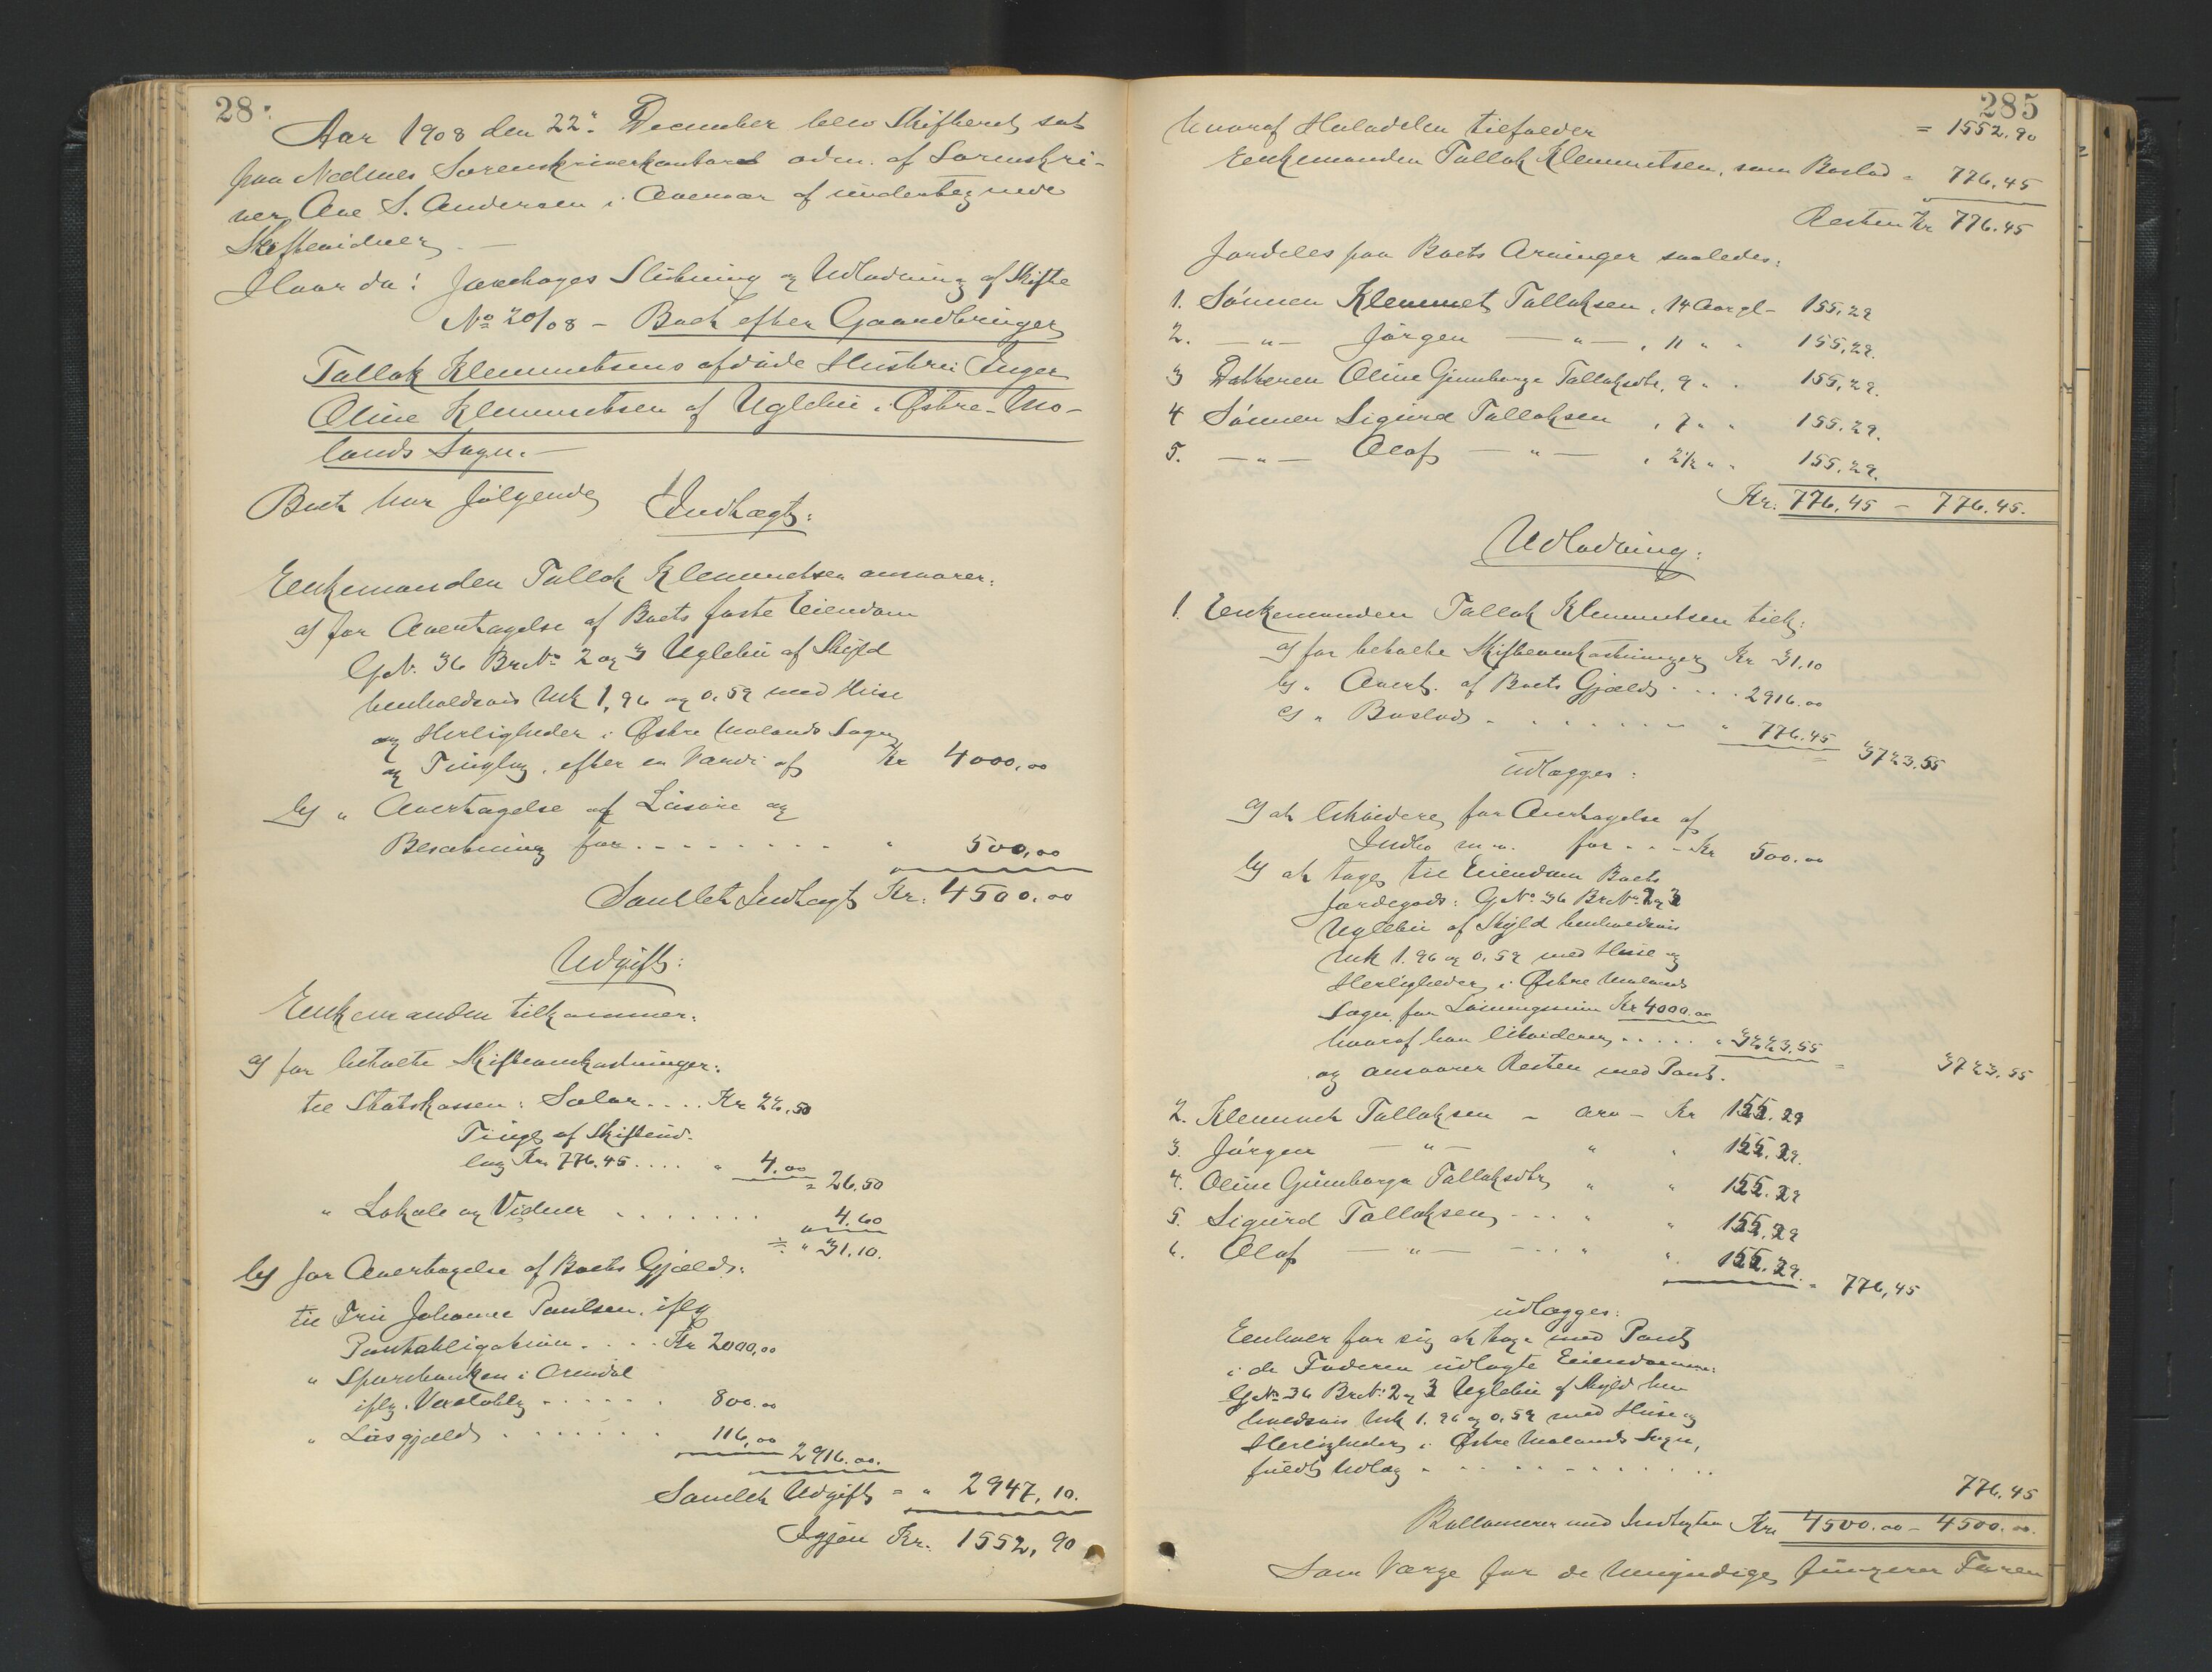 28
Aar 1908 den 22. December blev Skifteret sat
paa Nedenes Sorenskriverkontor adm. af Sorenskri-
ver Ove S. Andersen i Overvær af undertegnede
Skiftevidner. —
Hvor da: foretoges Slutning og Udlodning af Skifte
No 20/08 – Boet efter Gaardbruger
Tallak Klemmetsens afdøde Hustru Inger
Oline Klemmetsen af Uglebu i Østre-Mo-
lands Sogn. —
Boet har følgende Indtægt:
Enkemanden Tallak Klemmetsen ansvarer:
a) for Overtagelse af Boets faste Eiendom
G.N. 36 Br.No 2 og 3 Uglebu af Skyld
henholdsvis Mk 1,96 og 0,59 med Huse
og Herligheder i Østre Molands Sogn
og Tinglag, efter en Værdi af Kr 4000,00
b) " Overtagelse af Løsøre og
Besætning for - - - - - - - - " 500,00
Samlet Indtægt Kr. 4500.00
Udgift:
Enkemanden tilkommer:
a) for betalte Skifteomkostninger:
til Statskassen: Salær.... Kr 22,50
Tingl. af Skifteud-
læg Kr. 776.45.... " 4.00 = 26,50
" Lokale og Vidner . . . . . . . 4.60
÷ " 31.10.
b) for Overtagelse af Boets Gjæld:
til Fru Johanne Paulsen, iflg
Pantobligation. . . . Kr 2000,00
" Sparebanken i Arendal
iflg. Vexelobly . . . . . . 800.00
" Løsgjæld . . . . . . . 116,00
2916.00.
Samlet Udgift = " 2947,10.
Igjen Kr. 1552,90
285
hvoraf Halvdelen tilfalder = 1552.90
Enkemanden Tallak Klemmetsen, som Boslod = 776,45
Resten Kr 776.45
fordeles paa Boets Arvinger saaledes:
1. Sønnen Klemmet Tallaksen, 14 Aar gl - 155,29
2. — " — Jørgen — " — , 11 " " 155,29.
3 Datteren Oline Gunborga Tallaksdtr, 9 " . 155,29.
4 Sønnen Sigurd Tallaksen , 7 " " 155.29.
5. — " — Olaf — " — , 2½ " " 155,29.
Kr: 776,45 – 776.45.
Udlodning:
1. Enkemanden Tallak Klemmetsen tilk:
a) for betalte Skifteomkostninger Kr 31.10
b) " Overt. af Boets Gjæld . . . . 2916.00
c) " Boslod . . . . . . . " 776.45 3723.55
udlægges:
a) at likvidere for Overtagelse af
Indbo m. m. for - - - Kr 500.00
b) at tage til Eiendom Boets
Jordegods: G.No 36 Br.No 2 og 3
Uglebu af Skyld henholdsvis
Mk 1.96 og 0,59 med Huse og
Herligheder i Østre Molands
Sogn for Løsningssum Kr 4000.00
hvoraf han likviderer . . . . . " 3223,55 = 3723.55
og ansvarer Resten med Pant.
2. Klemmet Tallaksen – Arv – Kr 155.29
3. Jørgen — " — " " 155.29.
4. Oline Gunborga Tallaksdtr " " 155.29
5. Sigurd Tallaksen - . . " " 155,29
6. Olaf — " — - . . " " 155.29. = 776,45
udlægges:
Enhver for sig at tage med Pant
i de Faderen udlagte Eiendomme:
G.No 36 Br.N: 2 og 3 Uglebu af Skyld hen-
holdsvis Mk 1.96 og 0,59 med Huse og
Herligheder i Østre Molands Sogn,
fuldt Udlæg - - - - - - - - - . . 776.45
Ballancerer med Indtægten Kr. 4500.00 – 4500.00.
Som Værge for de Umyndige fungerer Faren